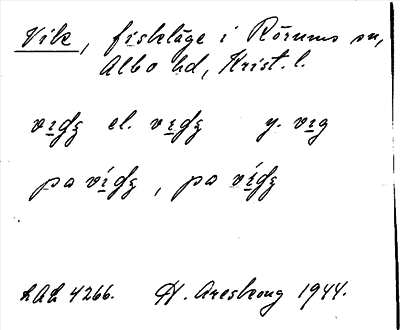 Vik, fiskläge i Rörums sn,
Albo hd, Krist. l.
vi̲gʒ el. vi̲gʒ y. vi̲g
pa ví̲gʒ, pa ví̲gʒ
LAL 4266. H. Areskoug 1944.